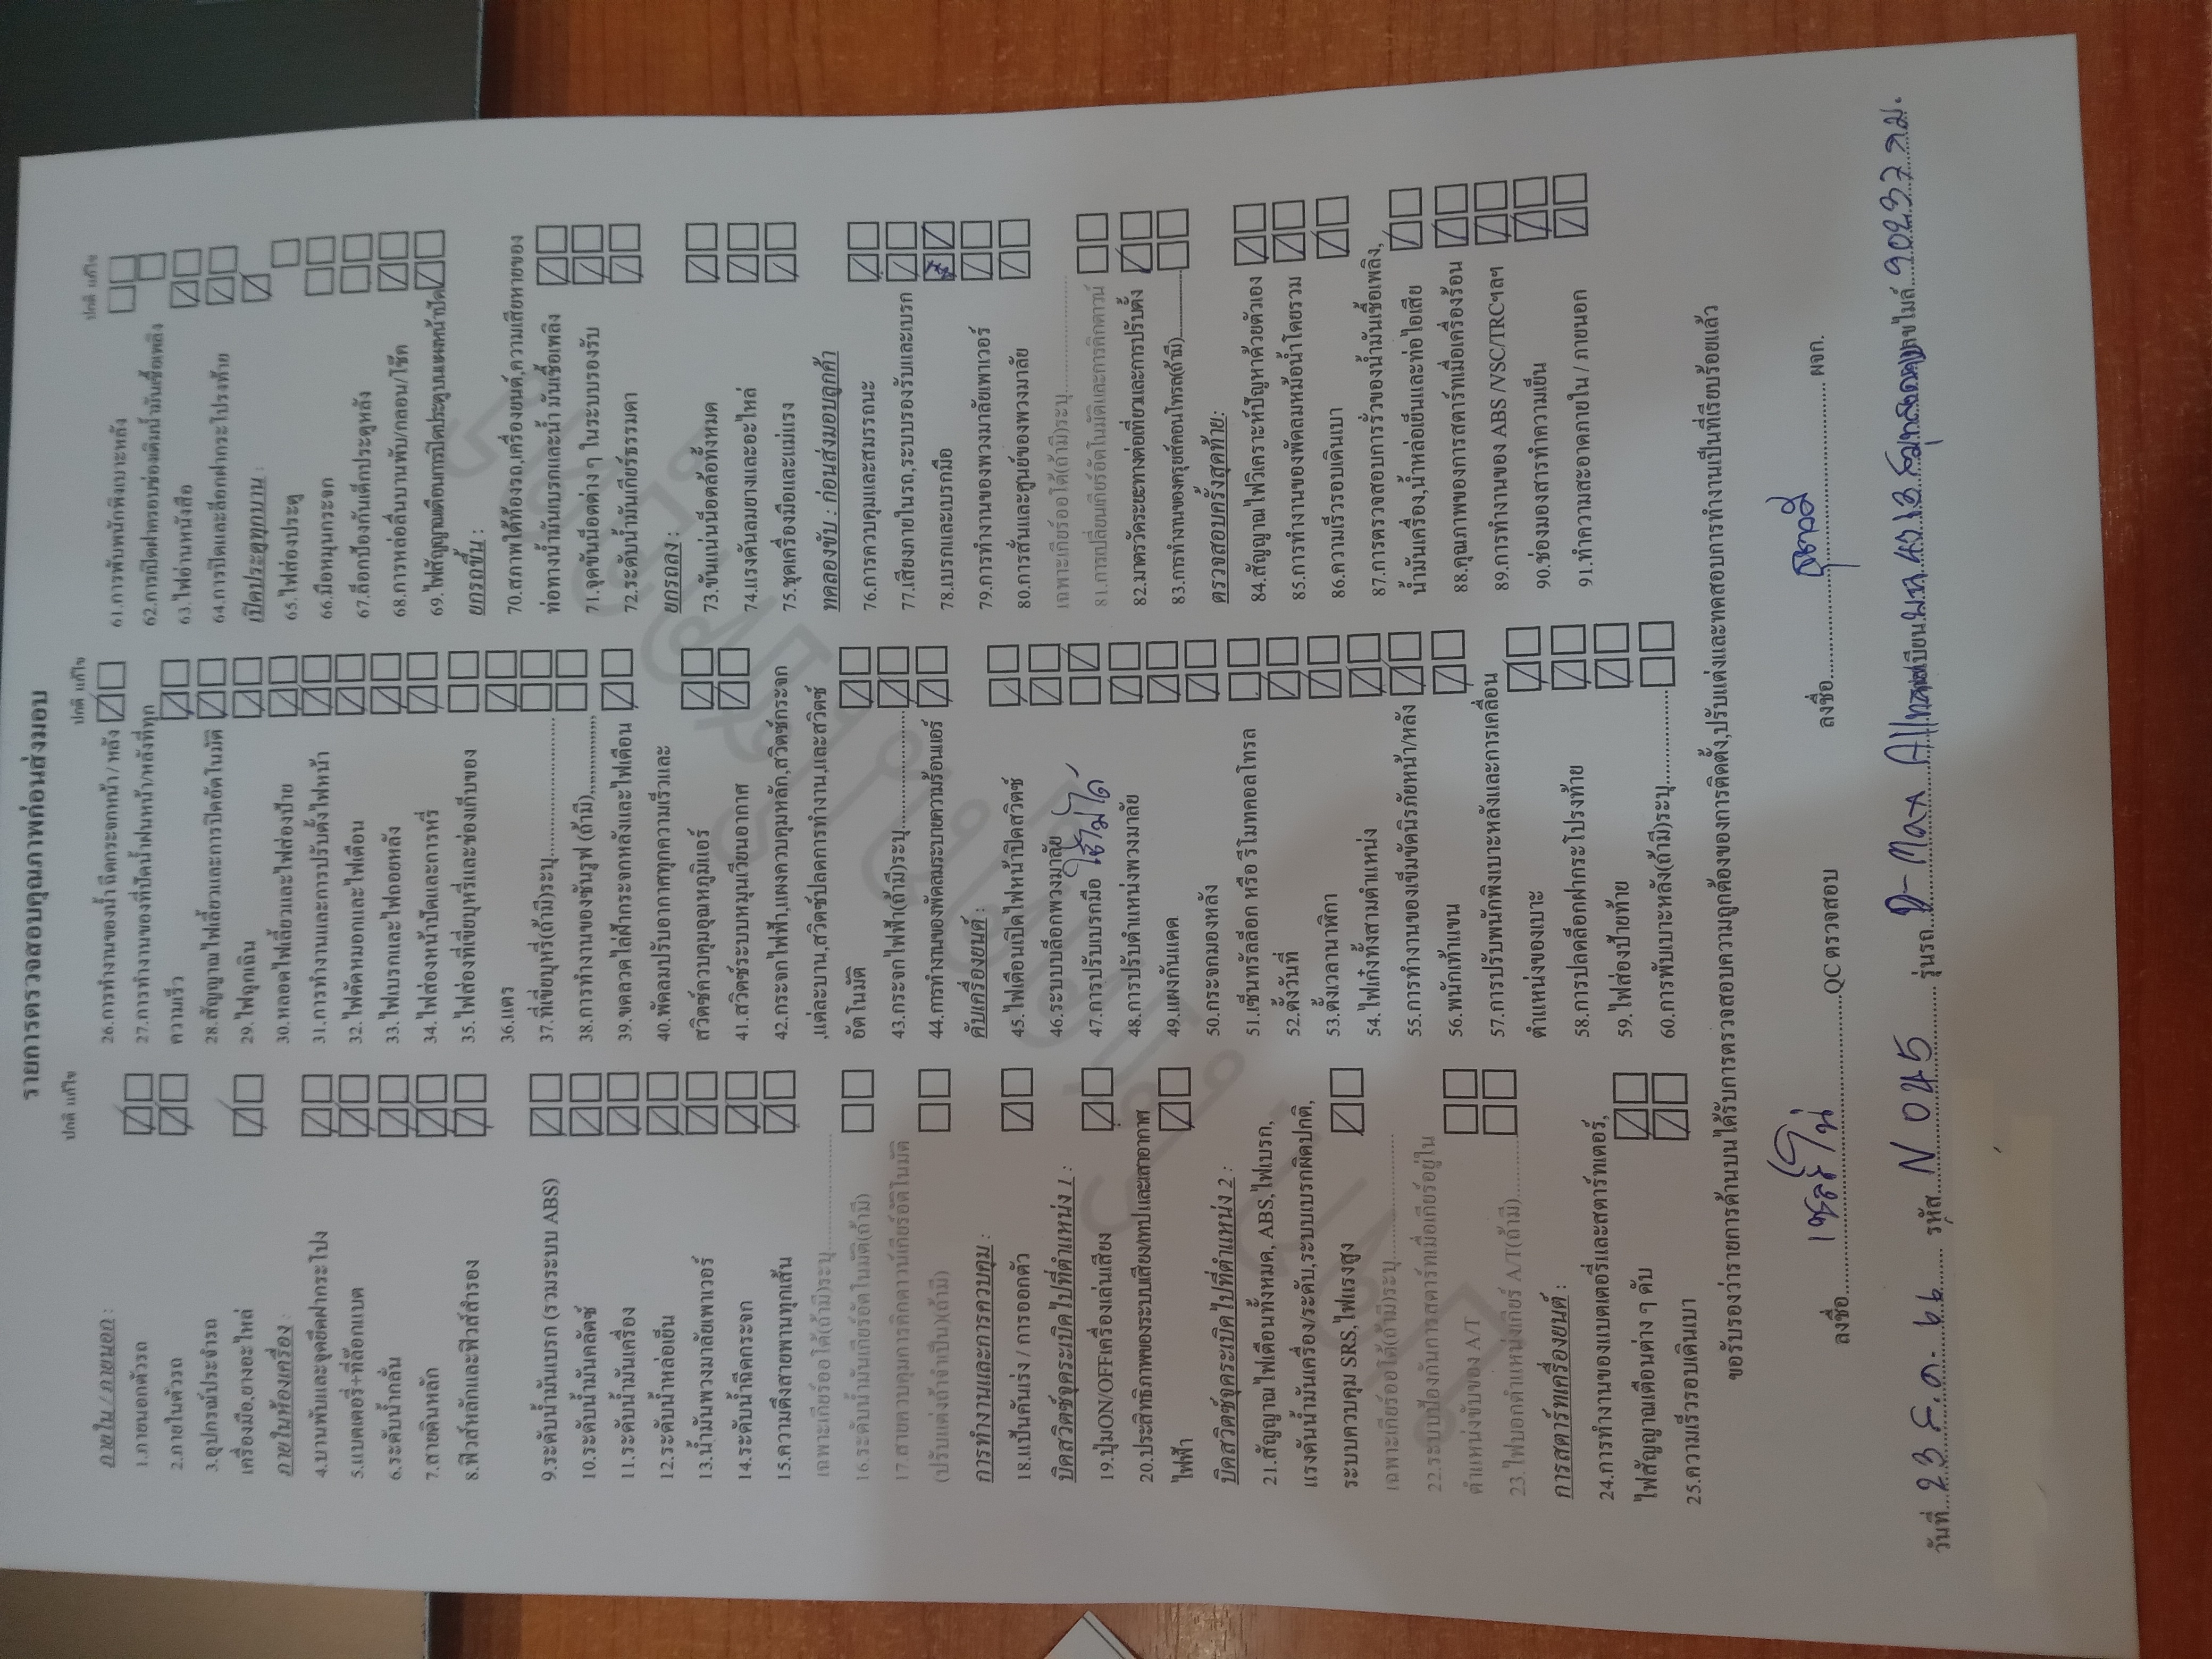 รายการตรวจสอบคุณภาพก่อนส่งมอบ
ปกติ แก้ไข
ภายใน / ภายนอก :
1.ภายนอกตัวรถ
2.ภายในตัวรถ
3.อุปกรณ์ประจำรถ
เครื่องมือ,ยางอะไหล่
ภายในห้องเครื่อง :
4.บานพับและจุดยึดฝากระโปง
5.แบตเตอรี่+ที่ล๊อกแบต
6.ระดับน้ำกลั่น
7.สายดินหลัก
8.ฟิวส์หลักและฟิวส์สำรอง
9.ระดับน้ำมันเบรก (รวมระบบ ABS)
10.ระดับน้ำมันคลัตช์
11.ระดับน้ำมันเครื่อง
12.ระดับน้ำหล่อเย็น
13.น้ำมันพวงมาลัยเพาเวอร์
14.ระดับน้ำฉีดกระจก
15.ความตึงสายพานทุกเส้น
เฉพาะเกียร์ออโต้(ถ้ามี)ระบุ
16.ระดับน้ำมันเกียร์อัตโนมัติ(ถ้ามี)
17.สายควบคุมการคิกดาวน์เกียร์อัติโนมัติ
(ปรับแต่งถ้าจำเป็น)(ถ้ามี)
การทำงานและการควบคุม :
18.แป้นคันเร่ง / การออกตัว
บิดสวิตช์จุดระเบิดไปที่ตำแหน่ง 1 :
19.ปุ่มON/OFFเครื่องเล่นเสียง
20.ประสิทธิภาพของระบบเสียง/เทปและเสาอากาศ
ไฟฟ้า
บิดสวิตซ์จุดระเบิดไปที่ตำแหน่ง 2 :
21.สัญญาณไฟเตือนทั้งหมด, ABS,ไฟเบรก,
แรงดันน้ำมันเครื่อง/ระดับ,ระบบเบรกผิดปกติ,
ระบบควบคุม SRS,ไฟแรงสูง
เฉพาะเกียร์ออโต้(ถ้ามี)ระบุ
22.ระบบป้องกันการสตาร์ทเมื่อเกียร์อยู่ใน
ตำแหน่งขับของ A/T
23.ไฟบอกตำแหน่งเกียร์ A/T(ถ้ามี)
การสตาร์ทเครื่องยนต์ :
24.การทำงานของแบตเตอรี่และสตาร์ทเตอร์,
ไฟสัญญาณเตือนต่าง ๆ ดับ
25.ความเร็วรอบเดินเบา
ปกติ แก้ไข
26.การทำงานของน้ำฉีดกระจกหน้า / หลัง
27.การทำงานของที่ปัดน้ำฝนหน้า/หลังที่ทุก
ความเร็ว
28.สัญญาณไฟเลี้ยวและการปิดอัตโนมัติ
29.ไฟฉุกเฉิน
30.หลอดไฟเลี้ยวและไฟส่องป้าย
31.การทำงานและการปรับตั้งไฟหน้า
32.ไฟตัดหมอกและไฟเตือน
33.ไฟเบรกและไฟถอยหลัง
34.ไฟส่องหน้าปัดและการหรี่
35.ไฟส่องที่เขี่ยบุหรี่และช่องเก็บของ
36.แตร
37.ที่เขี่ยบุหรี่(ถ้ามี)ระบุ
38.การทำงานของซันรูฟ (ถ้ามี)
39.ขดลวดไล่ฝ้ากระจกหลังและไฟเตือน
40.พัดลมปรับอากาศทุกความเร็วและ
สวิตซ์ควบคุมอุณหภูมิแอร์
41.สวิตซ์ระบบหมุนเวียนอากาศ
42.กระจกไฟฟ้า,แผงควบคุมหลัก,สวิตช์กระจก
,แต่ละบาน,สวิตซ์ปลดการทำงาน,และสวิตซ์
อัตโนมัติ
43.กระจกไฟฟ้า(ถ้ามี)ระบุ
44.การทำงานของพัดลมระบายความร้อนแอร์
ดับเครื่องยนต์ :
45.ไฟเตือนเปิดไฟหน้าปิดสวิตซ์
46.ระบบบล็อกพวงมาลัย
47.การปรับเบรกมือ ใช้ไม่ได้
48.การปรับตำแหน่งพวงมาลัย
49.แผงกันแดด
50.กระจกมองหลัง
51.เซ็นทรัลล็อก หรือ รีโมทคอลโทรล
52.ตั้งวันที่
53.ตั้งเวลานาฬิกา
54.ไฟเก๋งทั้งสามตำแหน่ง
55.การทำงานของเข็มขัดนิรภัยหน้า/หลัง
56.พนักเท้าแขน
57.การปรับพนักพิงเบาะหลังและการเคลื่อน
ตำแหน่งของเบาะ
58.การปลดล็อกฝากระโปรงท้าย
59.ไฟส่องป้ายท้าย
60.การพับเบาะหลัง(ถ้ามี)ระบุ
ปกติ แก้ไข
61.การพับพนักพิงเบาะหลัง
62.การเปิดฝาครอบช่องเติมน้ำมันเชื้อเพลิง
63.ไฟอ่านหนังสือ
64.การปิดและล๊อกฝากระโปรงท้าย
เปิดประตูทุกบาน :
65.ไฟส่องประตู
66.มือหมุนกระจก
67.ล๊อกป้องกันเด็กประตูหลัง
68.การหล่อลื่นบานพับ/กลอน/โช๊ค
69.ไฟสัญญาณเตือนการปิดประตูบนแผงหน้าปัด
ยกรถขึ้น :
70.สภาพใต้ท้องรถ,เครื่องยนต์,ความเสียหายของ
ท่อทางน้ำมันเบรกและน้ำ มันเชื้อเพลิง
71.จุดขันน๊อตต่าง ๆ ในระบบรองรับ
72.ระดับน้ำมันเกียร์ธรรมดา
ยกรถลง :
73.ขันแน่นน๊อตล้อทั้งหมด
74.แรงดันลมยางและอะไหล่
75.ชุดเครื่องมือและแม่แรง
ทดลองขับ : ก่อนส่งมอบลูกค้า
76.การควบคุมและสมรรถนะ
77.เสียงภายในรถ,ระบบรองรับและเบรก
78.เบรกและเบรกมือ
79.การทำงานของพวงมาลัยเพาเวอร์
80.การสั่นและศูนย์ของพวงมาลัย
เฉพาะเกียร์ออโต้(ถ้ามี)ระบุ
81.การเปลี่ยนเกียร์อัตโนมัติและการคิกดาวน์
82.มาตรวัดระยะทางต่อเที่ยวและการปรับตั้ง
83.การทำงานของครุยส์คอนโทรล(ถ้ามี)
ตรวจสอบครั้งสุดท้าย:
84.สัญญาณไฟวิเคราะห์ปัญหาด้วยตัวเอง
85.การทำงานของพัดลมหม้อน้ำโดยรวม
86.ความเร็วรอบเดินเบา
87.การตรวจสอบการรั่วของน้ำมันเชื้อเพลิง,
น้ำมันเครื่อง,น้ำหล่อเย็นและท่อไอเสีย
88.คุณภาพของการสตาร์ทเมื่อเครื่องร้อน
89.การทำงานของ ABS /VSC/TRCฯลฯ
90.ช่องมองสารทำความเย็น
91.ทำความสะอาดภายใน / ภายนอก
ขอรับรองว่ารายการด้านบนได้รับการตรวจสอบความถูกต้องของการติดตั้ง,ปรับแต่งและทดสอบการทำงานเป็นที่เรียบร้อยแล้ว
ลงชื่อ QC ตรวจสอบ ลงชื่อ ผจก.
วันที่ 23 ธ.ค. 66 รหัส N 045 รุ่นรถ D-Max All ทะเบียน เลขไมล์ 90237 กม.